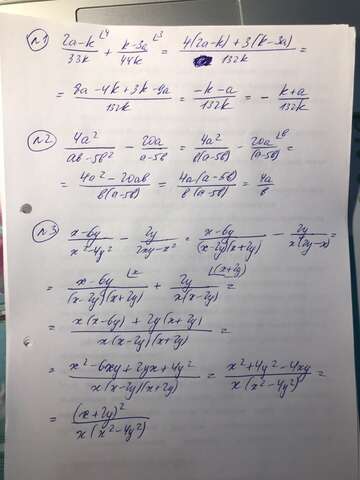 №1 (2a-k)/33k + (k-3a)/44k = (4(2a-k)+3(k-3a))/132k =
= (8a-4k+3k-9a)/132k = (-k-a)/132k = - (k+a)/132k
№2 4a²/(ab-5b²) - 20a/(a-5b) = 4a²/(b(a-5b)) - 20a/(a-5b) =
= (4a²-20ab)/(b(a-5b)) = (4a(a-5b))/(b(a-5b)) = 4a/b
№3 (x-6y)/(x²-4y²) - 2y/(2xy-x²) = (x-6y)/((x-2y)(x+2y)) - 2y/(x(2y-x)) =
= (x-6y)/((x-2y)(x+2y)) + 2y/(x(x-2y)) =
= (x(x-6y)+2y(x+2y))/(x(x-2y)(x+2y)) =
= (x²-6xy+2yx+4y²)/(x(x-2y)(x+2y)) = (x²+4y²-4xy)/(x(x²-4y²)) =
= (x+2y)²/(x(x²-4y²))